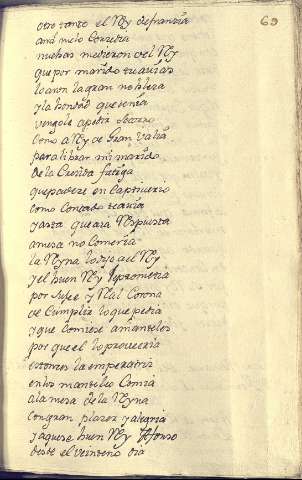 69
otro tanto el Rey de francia
ami me lo Concedia
muchas mercedes del Rey
que por marido trauias
loaron la gran nobleza
y la bondad que tenia
vengole a pedir Socorro
Como a Rey de Gran Valia
para librar mi marido
de la Crecida fatiga
que padece en Captiuerio
como Contado te auia
y asta que aia Respuesta
a mesa no Comeria
la Reyna lo dijo al Rey
y el buen Rey le prometia
por su fee y Real Corona
de Cumplir lo que pedia
y que Comiese a manteles
por que el lo proueeria
estonces la emperatriz
en los manteles Comia
a la mesa de la Reyna
con gran placer y alegria
y aquese buen Rey Alfonso
desde el veinteno dia